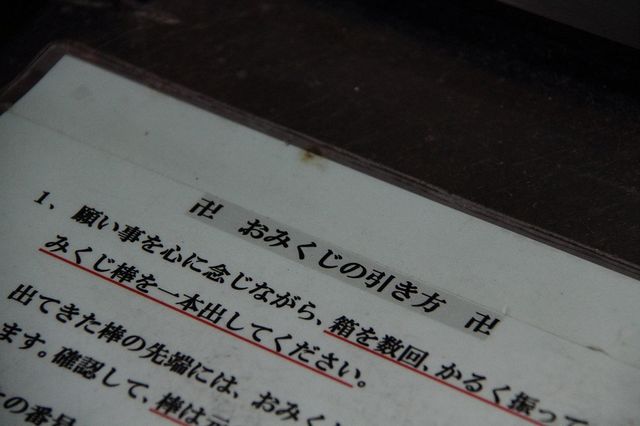 卍 おみくじの引き方 卍
1、願い事を心に念じながら、箱を数回、かるく振って
みくじ棒を一本出してください。
出てきた棒の先端には、おみく
ます。確認して、棒は元
の番号